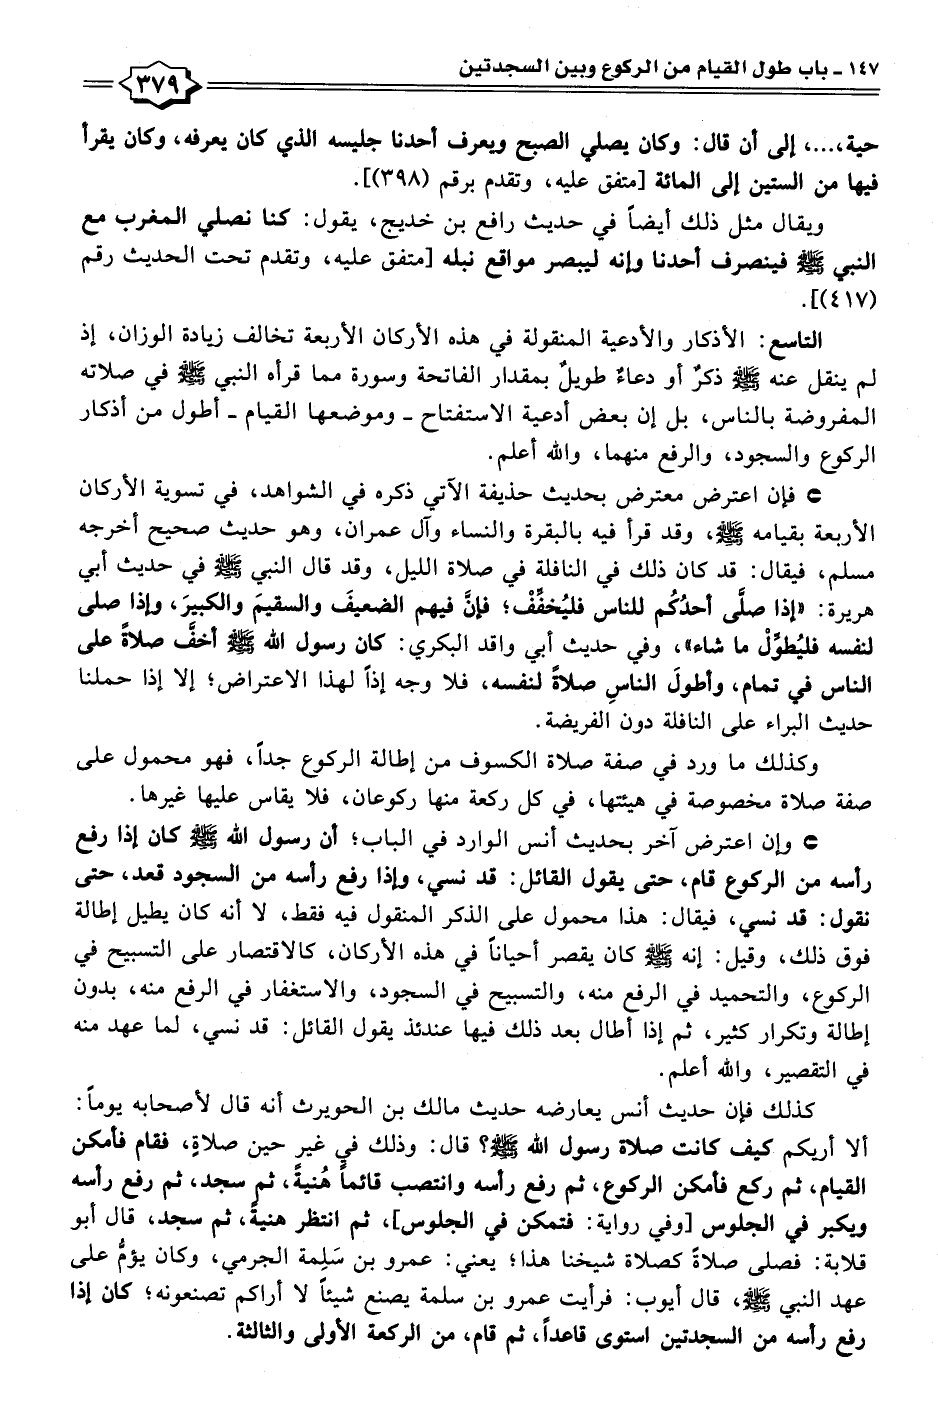 ١٤٧ - باب طول القيام من الركوع وبين السجدتين
٣٧٩
حية،...، إلى أن قال: وكان يصلي الصبح ويعرف أحدنا جليسه الذي كان يعرفه، وكان يقرأ
فيها من الستين إلى المائة [متفق عليه، وتقدم برقم (٣٩٨)].
ويقال مثل ذلك أيضاً في حديث رافع بن خديج، يقول: كنا نصلي المغرب مع
النبي ﷺ فينصرف أحدنا وإنه ليبصر مواقع نبله [متفق عليه، وتقدم تحت الحديث رقم
(٤١٧)].
التاسع: الأذكار والأدعية المنقولة في هذه الأركان الأربعة تخالف زيادة الوزان، إذ
لم ينقل عنه ﷺ ذكرٌ أو دعاءٌ طويلٌ بمقدار الفاتحة وسورة مما قرأه النبي ﷺ في صلاته
المفروضة بالناس، بل إن بعض أدعية الاستفتاح - وموضعها القيام - أطول من أذكار
الركوع والسجود، والرفع منهما، والله أعلم.
⊃ فإن اعترض معترض بحديث حذيفة الآتي ذكره في الشواهد، في تسوية الأركان
الأربعة بقيامه ﷺ، وقد قرأ فيه بالبقرة والنساء وآل عمران، وهو حديث صحيح أخرجه
مسلم، فيقال: قد كان ذلك في النافلة في صلاة الليل، وقد قال النبي ﷺ في حديث أبي
هريرة: «إذا صلَّى أحدُكُم للناس فليُخفِّفْ؛ فإنَّ فيهم الضعيفَ والسقيمَ والكبيرَ، وإذا صلى
لنفسه فليُطوِّلْ ما شاء»، وفي حديث أبي واقد البكري: كان رسول الله ﷺ أخفَّ صلاةً على
الناس في تمام، وأطولَ الناسِ صلاةً لنفسه، فلا وجه إذاً لهذا الاعتراض؛ إلا إذا حملنا
حديث البراء على النافلة دون الفريضة.
وكذلك ما ورد في صفة صلاة الكسوف من إطالة الركوع جداً، فهو محمول على
صفة صلاة مخصوصة في هيئتها، في كل ركعة منها ركوعان، فلا يقاس عليها غيرها.
⊃ وإن اعترض آخر بحديث أنس الوارد في الباب؛ أن رسول الله ﷺ كان إذا رفع
رأسه من الركوع قام، حتى يقول القائل: قد نسي، وإذا رفع رأسه من السجود قعد، حتى
نقول: قد نسي، فيقال: هذا محمول على الذكر المنقول فيه فقط، لا أنه كان يطيل إطالة
فوق ذلك، وقيل: إنه ﷺ كان يقصر أحياناً في هذه الأركان، كالاقتصار على التسبيح في
الركوع، والتحميد في الرفع منه، والتسبيح في السجود، والاستغفار في الرفع منه، بدون
إطالة وتكرار كثير، ثم إذا أطال بعد ذلك فيها عندئذ يقول القائل: قد نسي، لما عهد منه
في التقصير، والله أعلم.
كذلك فإن حديث أنس يعارضه حديث مالك بن الحويرث أنه قال لأصحابه يوماً:
ألا أريكم كيف كانت صلاة رسول الله ﷺ؟ قال: وذلك في غير حين صلاةٍ، فقام فأمكن
القيام، ثم ركع فأمكن الركوع، ثم رفع رأسه وانتصب قائماً هُنيةً، ثم سجد، ثم رفع رأسه
ويكبر في الجلوس [وفي رواية: فتمكن في الجلوس]، ثم انتظر هنيةً، ثم سجد، قال أبو
قلابة: فصلى صلاةً كصلاة شيخنا هذا؛ يعني: عمرو بن سَلِمة الجرمي، وكان يؤمُّ على
عهد النبي ﷺ، قال أيوب: فرأيت عمرو بن سلمة يصنع شيئاً لا أراكم تصنعونه؛ كان إذا
رفع رأسه من السجدتين استوى قاعداً، ثم قام، من الركعة الأولى والثالثة.